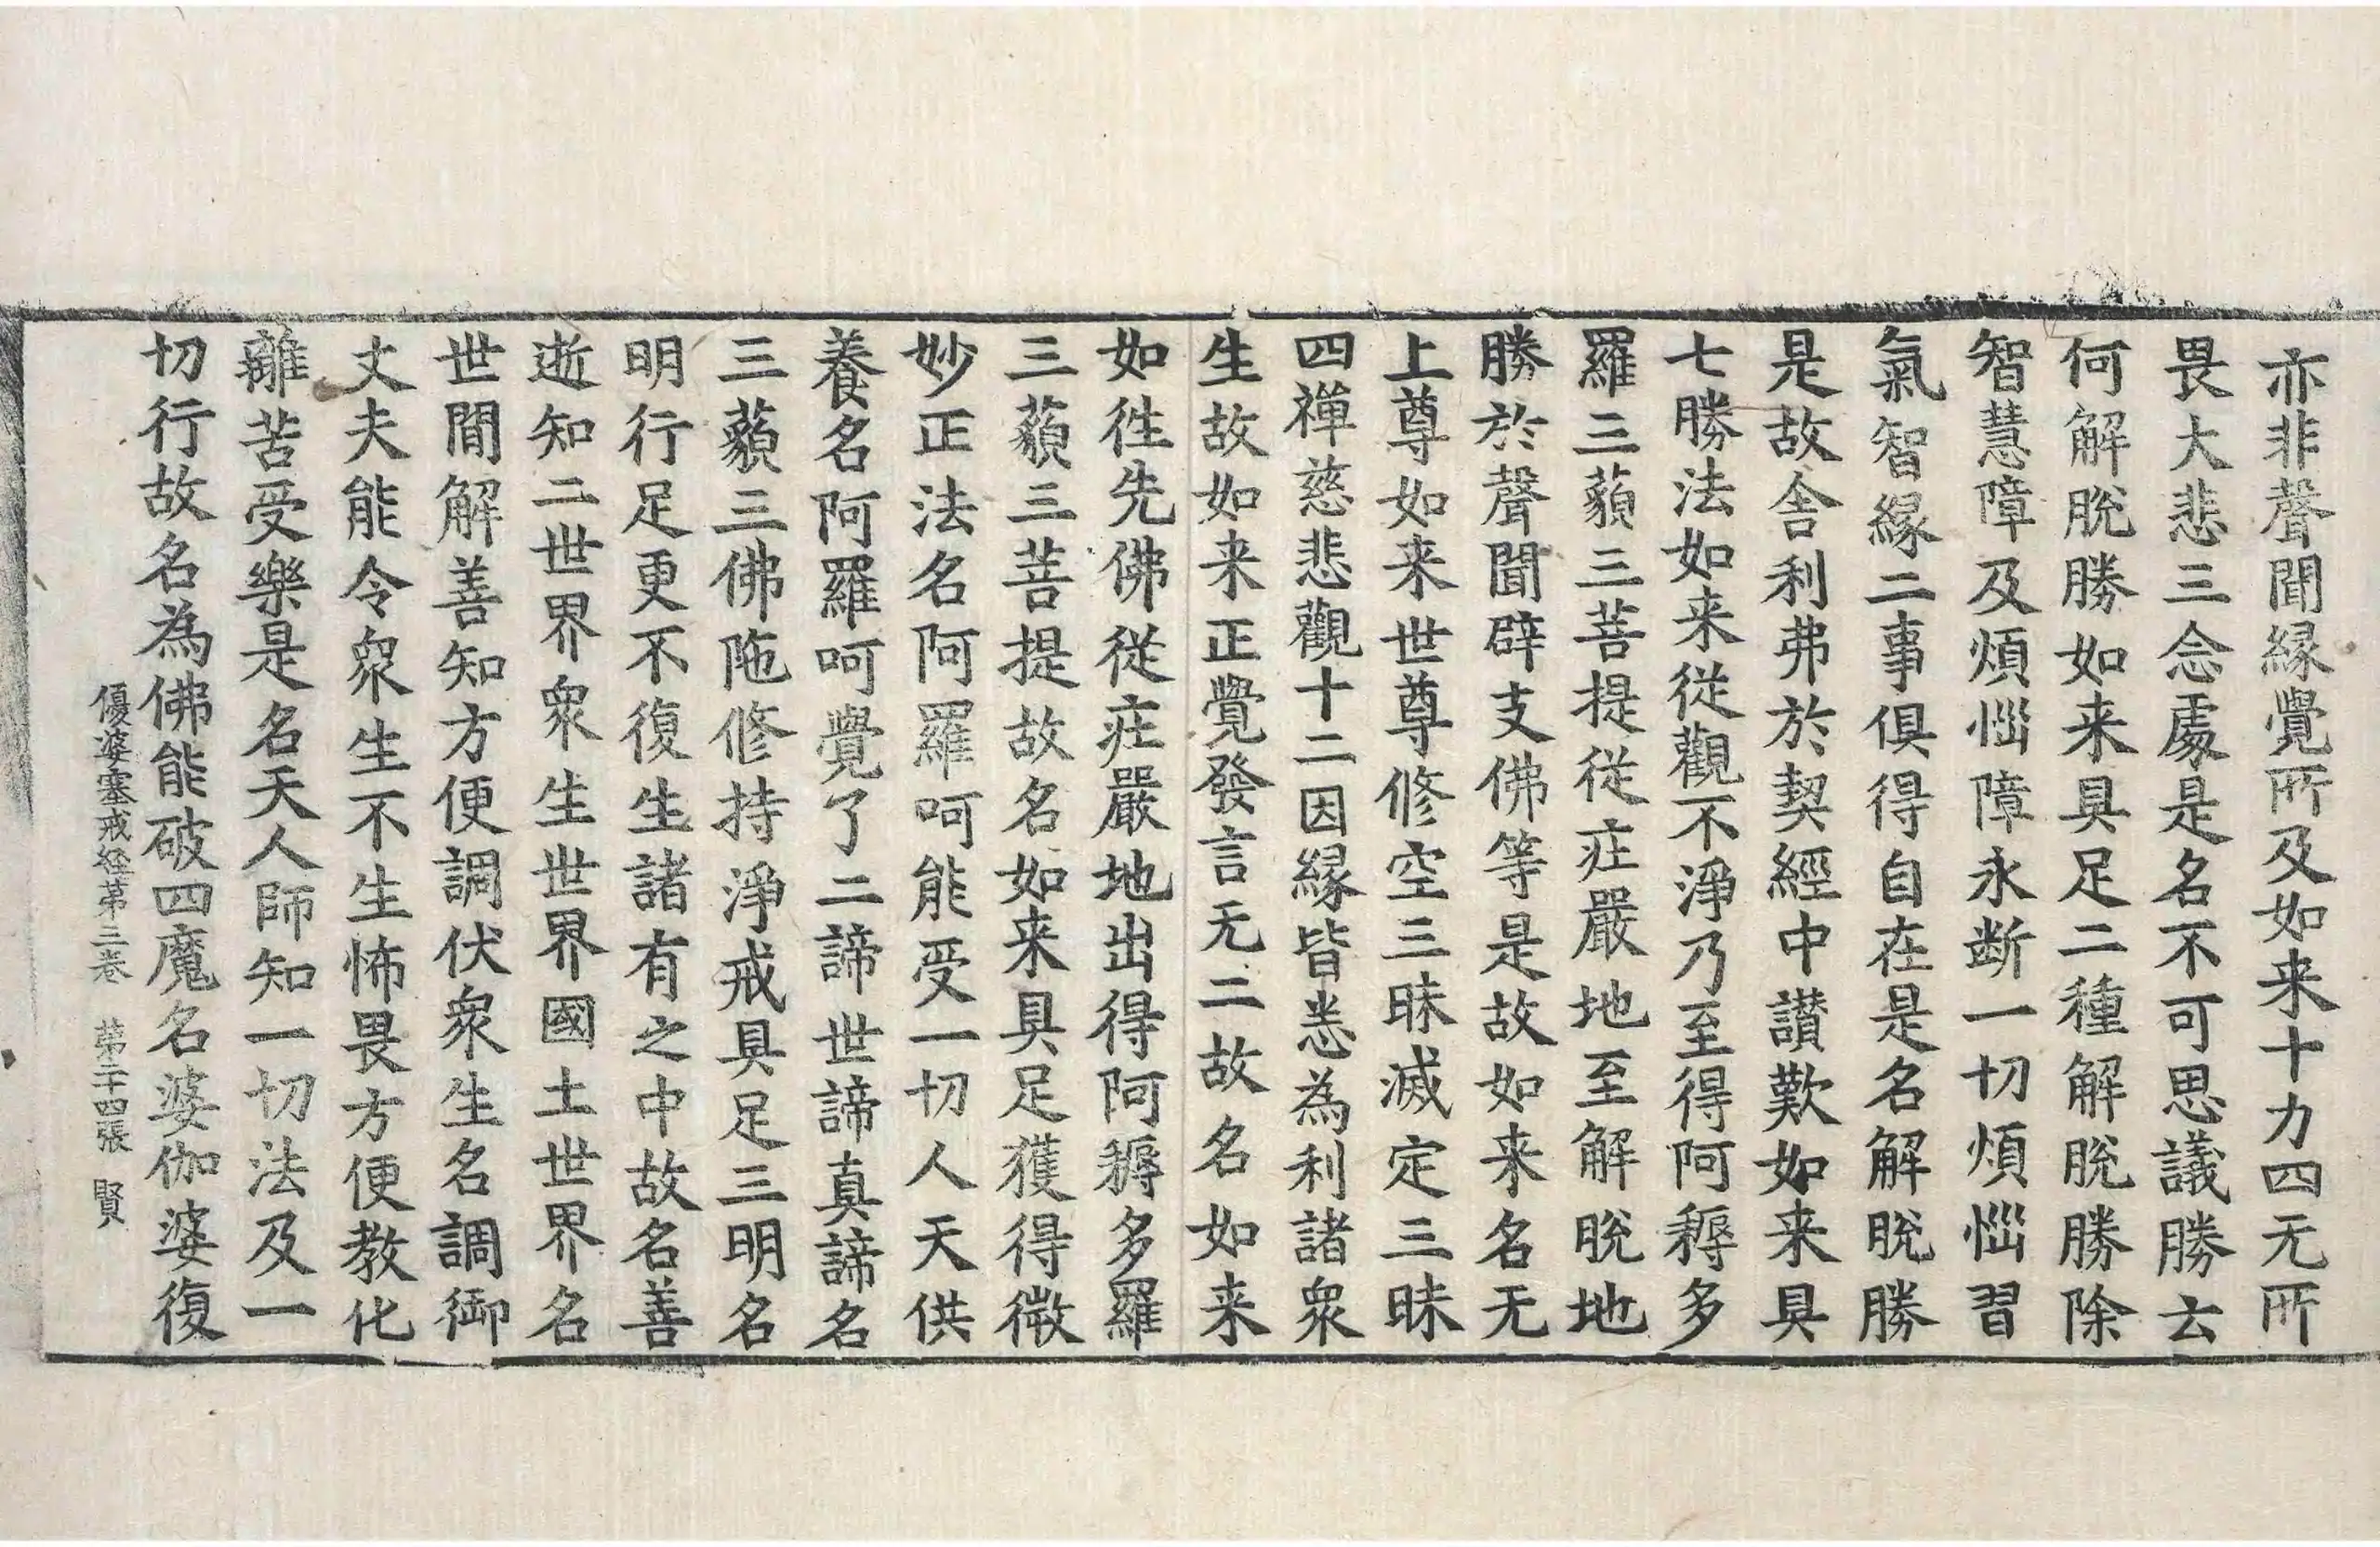 亦非聲聞縁覺所及如来十力四无所
畏大悲三念處是名不可思議勝云
何解脫勝如来具足二種解脫勝除
智慧障及煩惱障永断一切煩惱習
氣智縁二事俱得自在是名解脫勝
是故舎利弗於契經中讃歎如来具
七勝法如来從觀不淨乃至得阿耨多
羅三藐三菩提從莊嚴地至解脫地
勝於聲聞辟支佛等是故如来名无
上尊如来世尊修空三昧滅定三昧
四禪慈悲觀十二因縁皆悉為利諸衆
生故如来正覺發言无二故名如来
如徃先佛從莊嚴地出得阿耨多羅
三藐三菩提故名如来具足獲得微
妙正法名阿羅呵能受一切人天供
養名阿羅呵覺了二諦世諦真諦名
三藐三佛陁修持淨戒具足三明名
明行足更不復生諸有之中故名善
逝知二世界衆生世界國土世界名
世間解善知方便調伏衆生名調御
丈夫能令衆生不生怖畏方便教化
離苦受樂是名天人師知一切法及一
切行故名為佛能破四魔名婆伽婆復
優婆塞戒經第三卷 第二十四張 賢